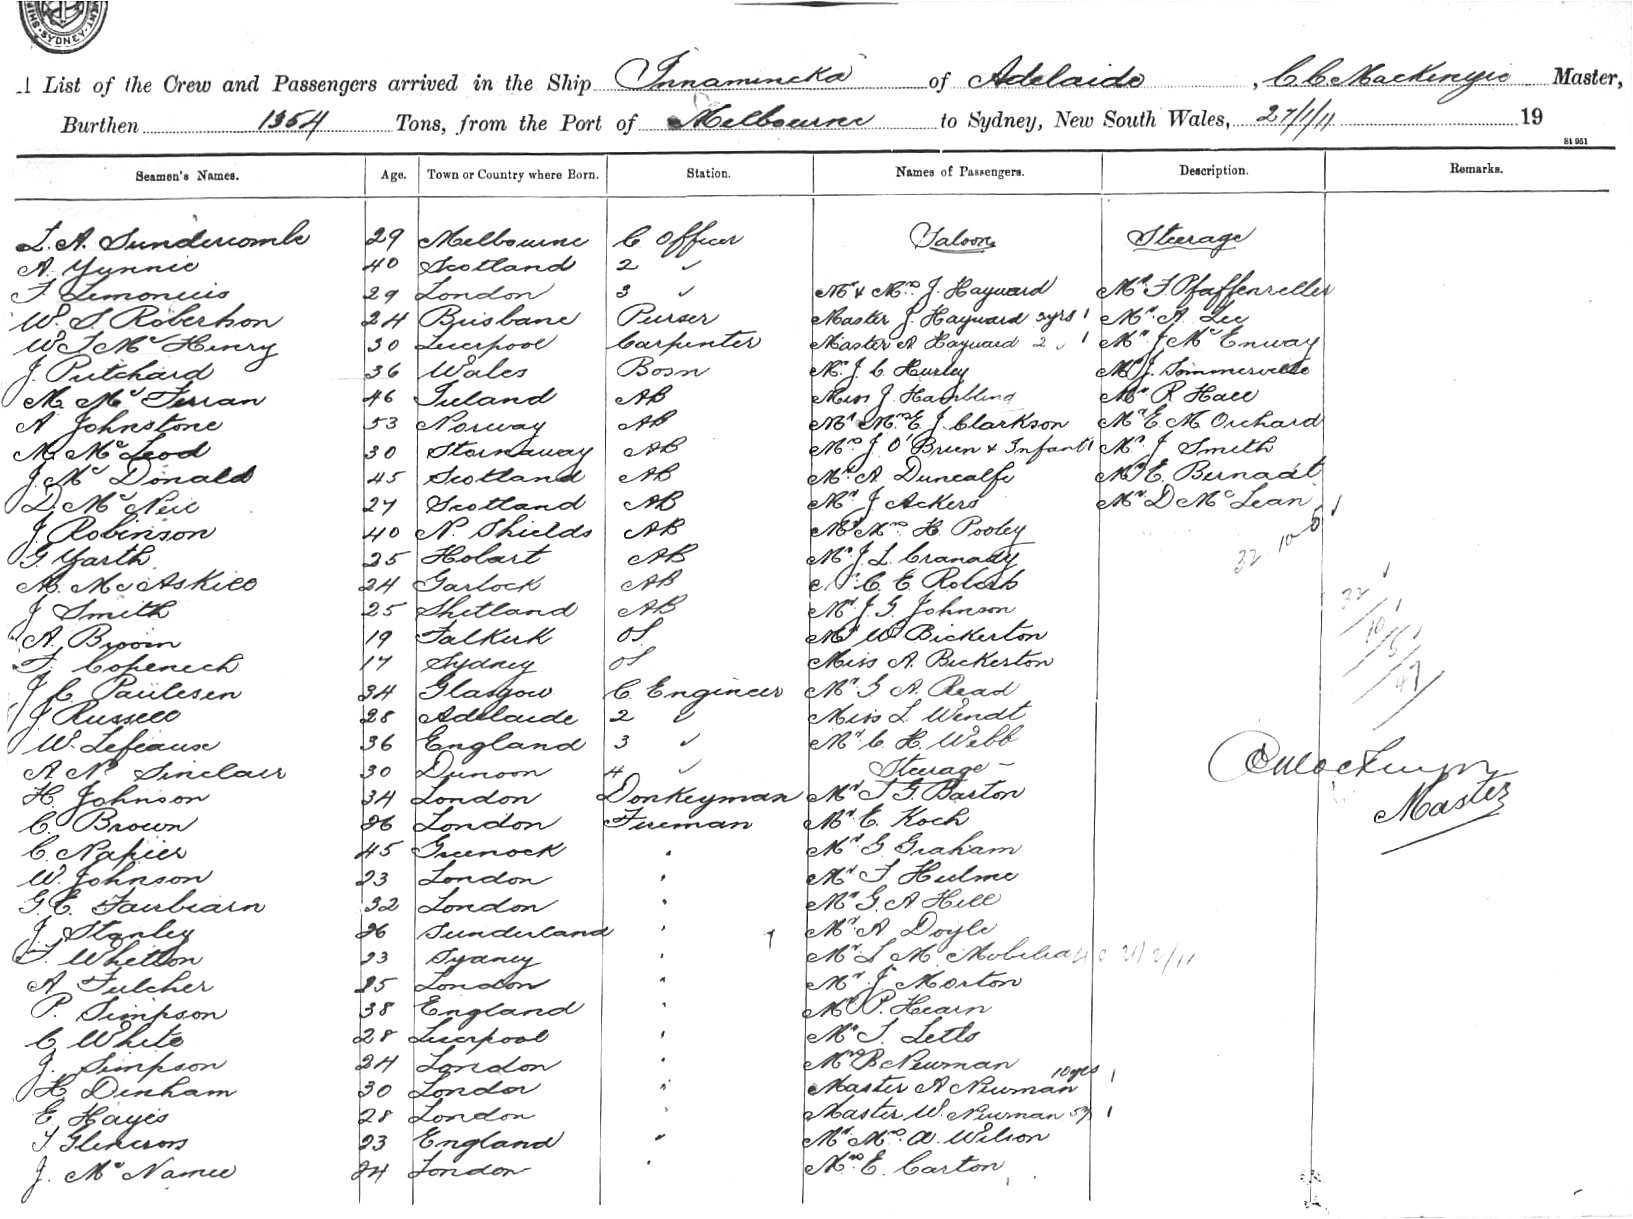 SYDNEY
A List of the Crew and Passengers arrived in the Ship Innamincka of Adelaide, C C Mackenzie Master,
Burthen 1354 Tons, from the Port of Melbourne to Sydney, New South Wales, 27/1/11 19
St 951
Seamen's Names. Age. Town or Country where Born. Station. Names of Passengers. Description. Remarks.
L. A. Sundercombe 29 Melbourne C Officer Saloon Steerage
A. Yunnie 40 Scotland 2 "
F Simonius 29 London 3 " Mr & Mrs J. Hayward Mr F Pfaffenzeller
W. S. Robertson 24 Brisbane Purser Master J. Hayward 3yrs 1 Mr A. Lee
W J Mc Henry 30 Liverpool Carpenter Master A Hayward 2 " 1 Mr J Mc Enway
J. Pritchard 36 Wales Bosn Mr J. C Hurley Mr J. Sommerville
M. Mc Ferran 46 Ireland AB Miss J Hambling Mr R Hall
A Johnstone 53 Norway AB Mr Mrs E J. Clarkson Mr E. M Orchard
M. Mc Leod 30 Stornaway AB Mrs J O'Brien & Infant 1 Mr J Smith
J. Mc Donald 45 Scotland AB Mr A Duncalfe Mr E. Bernadt
D. Mc Neil 27 Scotland AB Mr J Ackers Mr D Mc Lean
J Robinson 40 N. Shields AB Mr Mrs H Pooley 32 10 5
G Yarth 25 Hobart AB Mr J L. Cranady
A. Mc Askill 24 Garlock AB C E
J Smith 25 Shetland AB Mr J G Johnson 32/10/5/47
A. Brown 19 Falkirk OS Mr W Bickerton
F. Copenech 17 Sydney OS Miss A. Bickerton
J C Paulesen 34 Glasgow C. Engineer Mr G A. Read
J Russell 28 Adelaide 2 " Miss L Wendt
W. Lefeaux 36 England 3 " Mr C H. Webb
A Nr Sinclair 30 Dunoon 4 " Steerage -
H. Johnson 34 London Donkeyman Mr T G Barton
C. Brown 26 London Fireman Mr E. Koch
Master
C. Napier 45 Greenock " Mr G Graham
W. Johnson 23 London " Mr T Hulme
G. E. Fairbearn 32 London " Mr G. A Hill
J. Stanley 26 Sunderland " Mr A Doyle
T. Whetton 23 Sydney " Mr L M
A Fulcher 25 London " Mr J Morton
P. Simpson 38 England " Mr P. Hearn
C White 28 Liverpool " Mr T. Letts
J. Simpson 24 London " Mrs B Newman
H Dinham 30 London " Master A Newman 10yrs 1
E Hayes 28 London " Master W. Newman 5y 1
T Glencross 23 England " Mr Mrs A. Wilson
J. Mc Namee 24 London " Mrs E. Carton